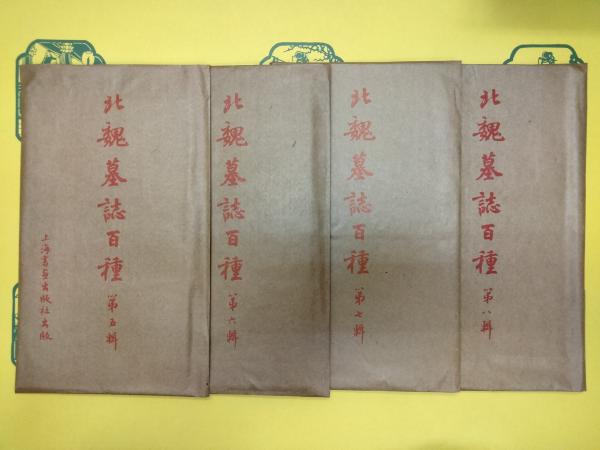 北魏墓誌百種
第五輯
上海書畫出版社出版
北魏墓誌百種
第六輯
北魏墓誌百種
第七輯
北魏墓誌百種
第八輯